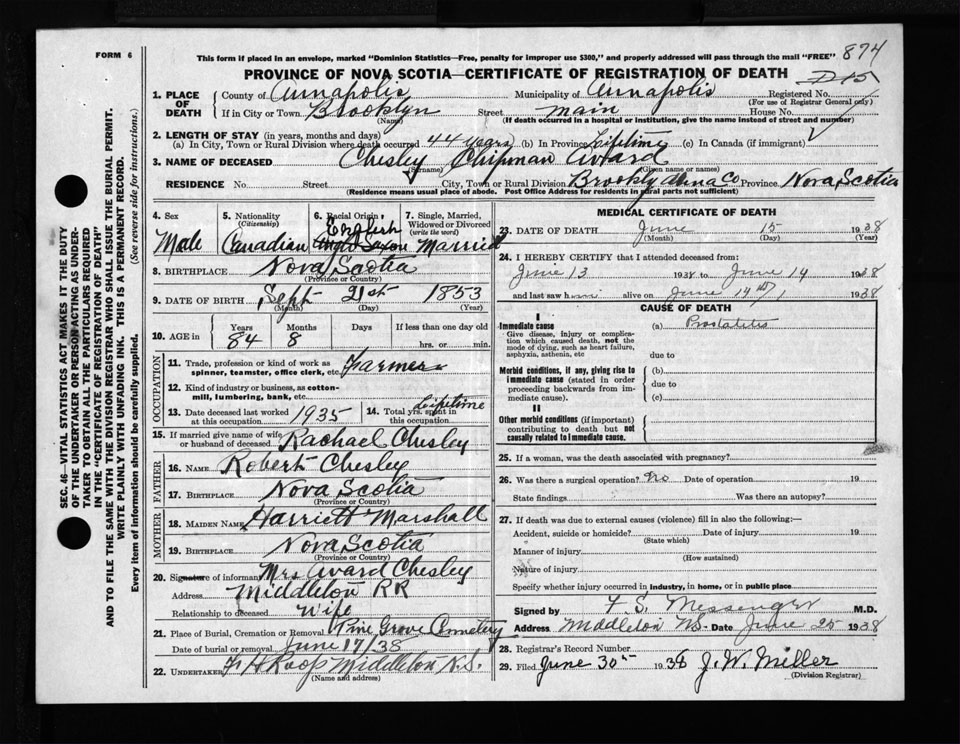 FORM 6
This form if placed in an envelope, marked "Dominion Statistics—Free, penalty for improper use $300," and properly addressed will pass through the mail "FREE" 874
PROVINCE OF NOVA SCOTIA—CERTIFICATE OF REGISTRATION OF DEATH
1. PLACE OF DEATH County of Annapolis Municipality of Annapolis Registered No.
(For use of Registrar General only)
If in City or Town Brooklyn Street main House No.
(Name) (If death occurred in a hospital or institution, give the name instead of street and number)
2. LENGTH OF STAY (in years, months and days)
(a) In City, Town or Rural Division where death occurred 44 years (b) In Province Lifetime (c) In Canada (if immigrant)
3. NAME OF DECEASED Chesley Chipman Avard
(Surname) (Given name or names)
RESIDENCE No. Street City, Town or Rural Division Brookly Anna Co Province Nova Scotia
(Residence means usual place of abode. Post Office Address for residents in rural parts not sufficient)
4. Sex 5. Nationality (Citizenship) 6. Racial Origin 7. Single, Married, Widowed or Divorced (write the word)
Male Canadian English Anglo Saxon Married
8. BIRTHPLACE Nova Scotia
(Province or Country)
9. DATE OF BIRTH Sept 21st 1853
(Month) (Day) (Year)
10. AGE in Years Months Days If less than one day old
84 8 hrs. or min.
OCCUPATION
11. Trade, profession or kind of work as spinner, teamster, office clerk, etc. Farmer
12. Kind of industry or business, as cotton-mill, lumbering, bank, etc.
13. Date deceased last worked at this occupation 1935 14. Total yrs. spent in this occupation Lifetime
15. If married give name of wife or husband of deceased Rachael Chesley
FATHER
16. NAME Robert Chesley
17. BIRTHPLACE Nova Scotia
(Province or Country)
MOTHER
18. MAIDEN NAME Harriett Marshall
19. BIRTHPLACE Nova Scotia
(Province or Country)
20. Signature of informant Mrs Avard Chesley
Address Middleton RR
Relationship to deceased Wife
21. Place of Burial, Cremation or Removal Pine Grove Cemetery
Date of burial or removal June 17/38
22. UNDERTAKER Roop Middleton N.S.
(Name and address)
MEDICAL CERTIFICATE OF DEATH
23. DATE OF DEATH June 15 1938
(Month) (Day) (Year)
24. I HEREBY CERTIFY that I attended deceased from:
June 13 1938 to June 14 1938
and last saw him alive on June 14th 1938
CAUSE OF DEATH
I
Immediate cause (a) Prostatitis
Give disease, injury or complication which caused death, not the mode of dying, such as heart failure, asphyxia, asthenia, etc due to
Morbid conditions, if any, giving rise to immediate cause (stated in order proceeding backwards from immediate cause). (b) due to (c)
II
Other morbid conditions (if important) contributing to death but not causally related to immediate cause.
25. If a woman, was the death associated with pregnancy?
26. Was there a surgical operation? No Date of operation 19
State findings Was there an autopsy?
27. If death was due to external causes (violence) fill in also the following:—
Accident, suicide or homicide? Date of injury 19
(State which)
Manner of injury
(How sustained)
Nature of injury
Specify whether injury occurred in industry, in home, or in public place
Signed by F. S. Messenger M.D.
Address Middleton N.S. Date June 25 1938
28. Registrar's Record Number
29. Filed June 30th 1938 J. W. Miller
(Division Registrar)
SEC. 46—VITAL STATISTICS ACT MAKES IT THE DUTY
OF THE UNDERTAKER OR PERSON ACTING AS UNDER-
TAKER TO OBTAIN ALL THE PARTICULARS REQUIRED
IN THE "CERTIFICATE OF REGISTRATION OF DEATH"
AND TO FILE THE SAME WITH THE DIVISION REGISTRAR WHO SHALL ISSUE THE BURIAL PERMIT.
WRITE PLAINLY WITH UNFADING INK. THIS IS A PERMANENT RECORD.
Every item of information should be carefully supplied. (See reverse side for instructions.)